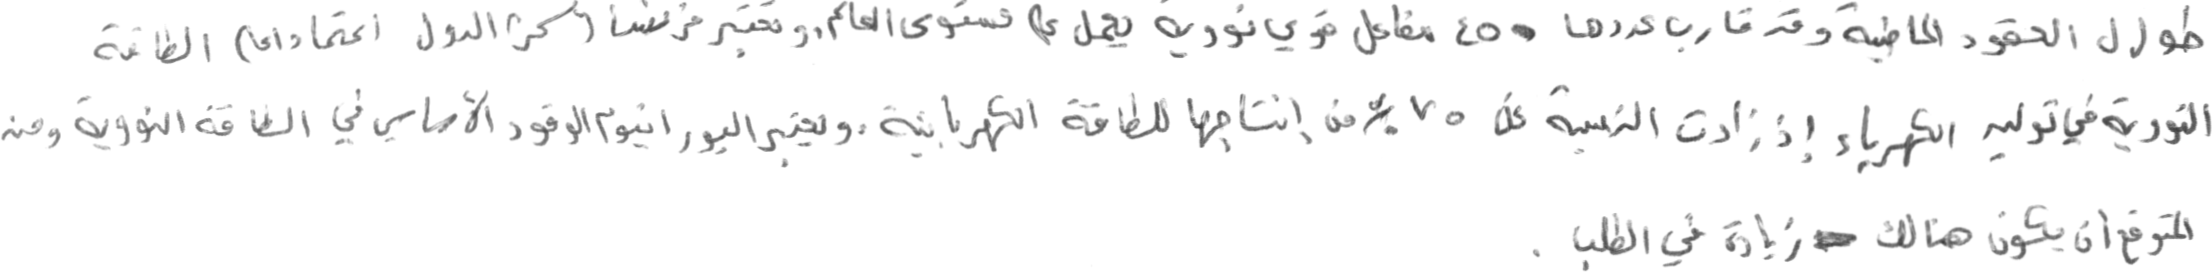 طوال العقود الماضية وقد قارب عددها ٤٥٠ مفاعل قوي نووية يعمل على مستوى العالم. وتعتبر فرنسا أكثر الدول اعتمادا على الطاقة
النووية في توليد الكهرباء إذ زادت النسبة على ٧٥٪ من إنتاجها للطاقة الكهربائية. ويعتبر اليورانيوم الوقود الأساسي في الطاقة النووية ومن
المتوقع أن يكون هنالك زيادة في الطلب .